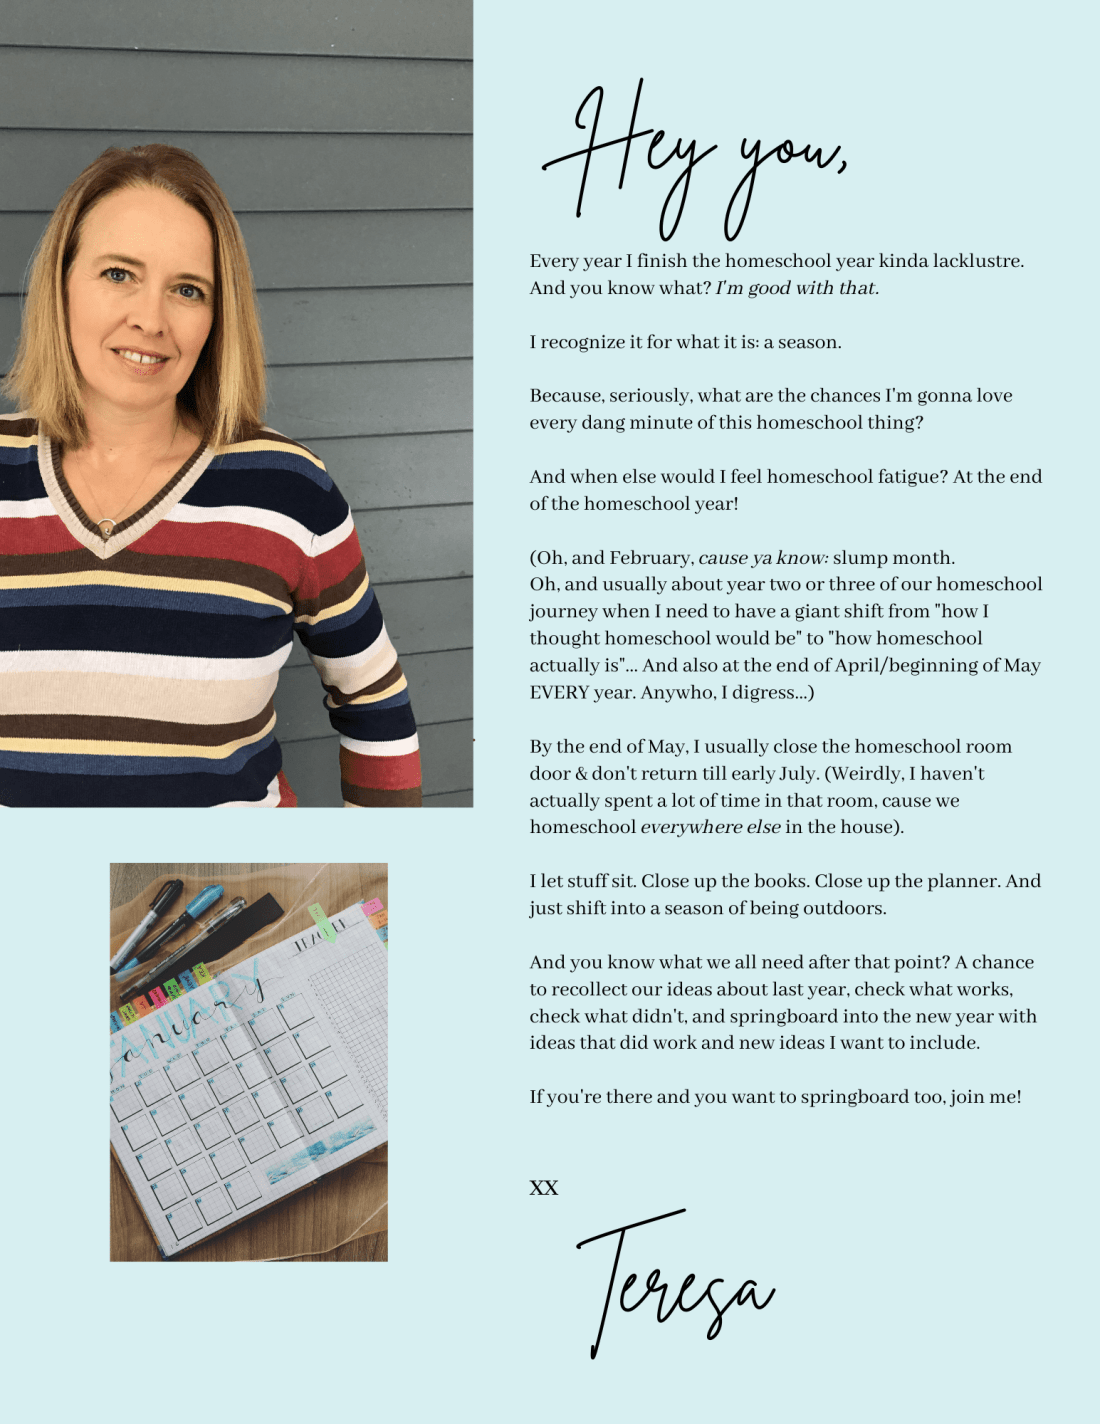 Hey you,
Every year I finish the homeschool year kinda lacklustre.
And you know what? I'm good with that.
I recognize it for what it is: a season.
Because, seriously, what are the chances I'm gonna love
every dang minute of this homeschool thing?
And when else would I feel homeschool fatigue? At the end
of the homeschool year!
(Oh, and February, cause ya know: slump month.
Oh, and usually about year two or three of our homeschool
journey when I need to have a giant shift from "how I
thought homeschool would be" to "how homeschool
actually is"... And also at the end of April/beginning of May
EVERY year. Anywho, I digress...)
By the end of May, I usually close the homeschool room
door & don't return till early July. (Weirdly, I haven't
actually spent a lot of time in that room, cause we
homeschool everywhere else in the house).
I let stuff sit. Close up the books. Close up the planner. And
just shift into a season of being outdoors.
And you know what we all need after that point? A chance
to recollect our ideas about last year, check what works,
check what didn't, and springboard into the new year with
ideas that did work and new ideas I want to include.
If you're there and you want to springboard too, join me!
XX
Teresa
TRACKER
JANUARY
January